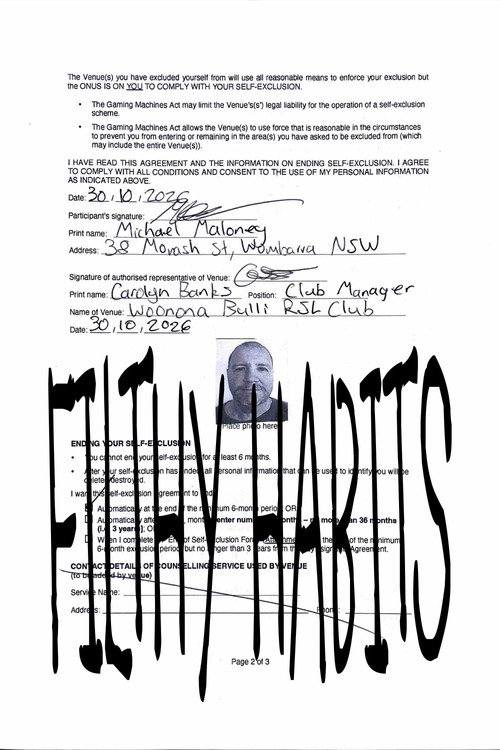 The Venue(s) you have excluded yourself from will use all reasonable means to enforce your exclusion but
the ONUS IS ON YOU TO COMPLY WITH YOUR SELF-EXCLUSION.
• The Gaming Machines Act may limit the Venue's(s') legal liability for the operation of a self-exclusion
scheme.
• The Gaming Machines Act allows the Venue(s) to use force that is reasonable in the circumstances
to prevent you from entering or remaining in the area(s) you have asked to be excluded from (which
may include the entire Venue(s)).
I HAVE READ THIS AGREEMENT AND THE INFORMATION ON ENDING SELF-EXCLUSION. I AGREE
TO COMPLY WITH ALL CONDITIONS AND CONSENT TO THE USE OF MY PERSONAL INFORMATION
AS INDICATED ABOVE.
Date: 30, 10, 2026
Participant's signature:
Print name: Michael Maloney
Address: 38 Morash St, Wombarra NSW
Signature of authorised representative of Venue:
Print name: Carolyn Banks Position: Club Manager
Name of Venue: Woonona Bulli RSL Club
Date: 30, 10, 2026
Place photo here
FILTHY HABITS
ENDING YOUR SELF-EXCLUSION
• You cannot end your self-exclusion for at least 6 months.
• After your self-exclusion has ended, all personal information that can be used to identify you will be
deleted/destroyed.
I want this self-exclusion agreement to end:
Automatically at the end of the minimum 6-month period; OR
Automatically after months enter number months – more than 36 months
(i.e. 3 years]; OR
When I complete End of Self-Exclusion Form the of the minimum
6-month exclusion period, but no longer than 3 years from the Agreement.
CONTACT DETAILS OF COUNSELLING SERVICE USED BY VENUE
(to be added by venue)
Service Name:
Address: Phone:
Page 2 of 3